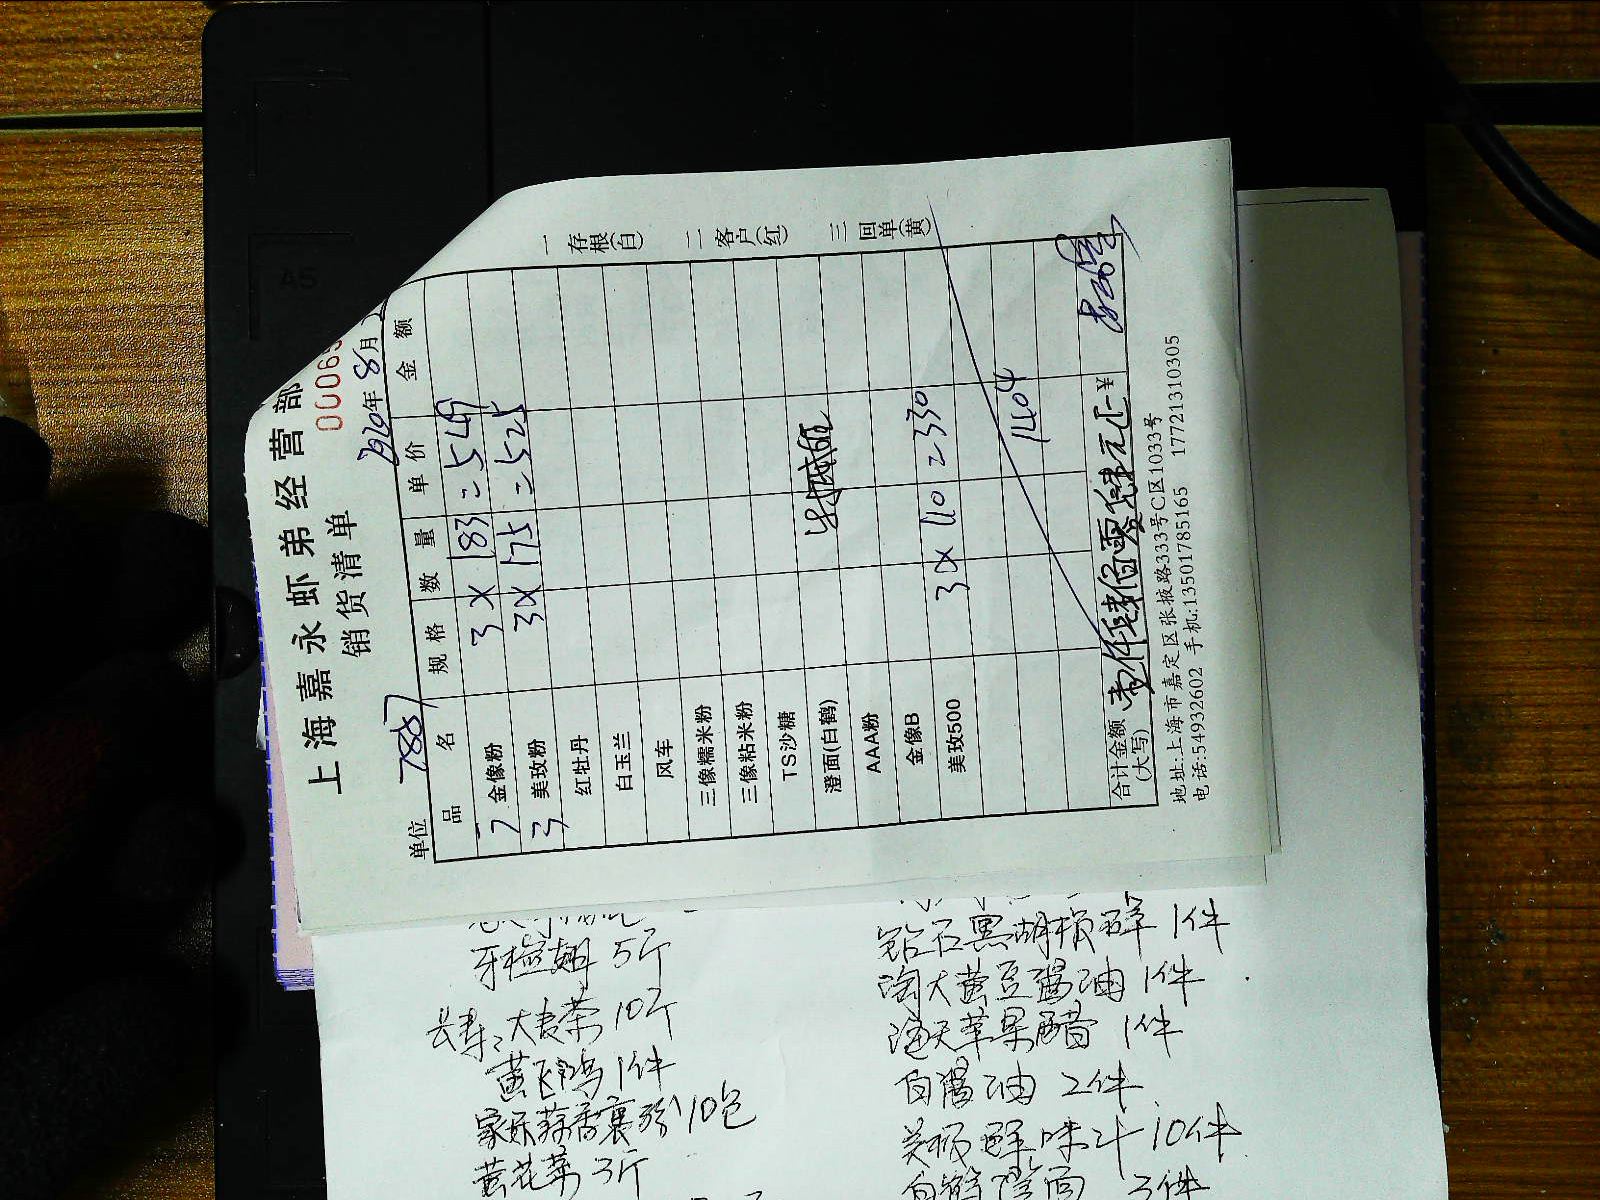 上海嘉永虾弟经营部
销货清单
00069
2020年 8月
单位 7887
品名 规格 数量 单价 金额
7 金像粉 3 × 183 = 549
3 美玫粉 3 × 175 = 525
红牡丹
白玉兰
风车
三像糯米粉
三像粘米粉
TS沙糖
澄面(白鹤)
AAA粉
金像B
美玫500 3 × 110 = 330
1404
合计金额 壹仟肆佰零肆元正 ¥
(大写)
地址:上海市嘉定区张掖路333号C区1033号
电话:54932602 手机:13501785165 17721310305
一存根(白) 二客户(红) 三回单(黄)
5斤
大麦茶 10斤
黄飞鸿 1件
家乐蒜香裹粉 10包
黄花菜 3斤
钻石黑胡椒碎 1件
淘大黄豆酱油 1件
海天苹果醋 1件
白酱油 2件
美极鲜味汁 10件
白鹤澄面 3件